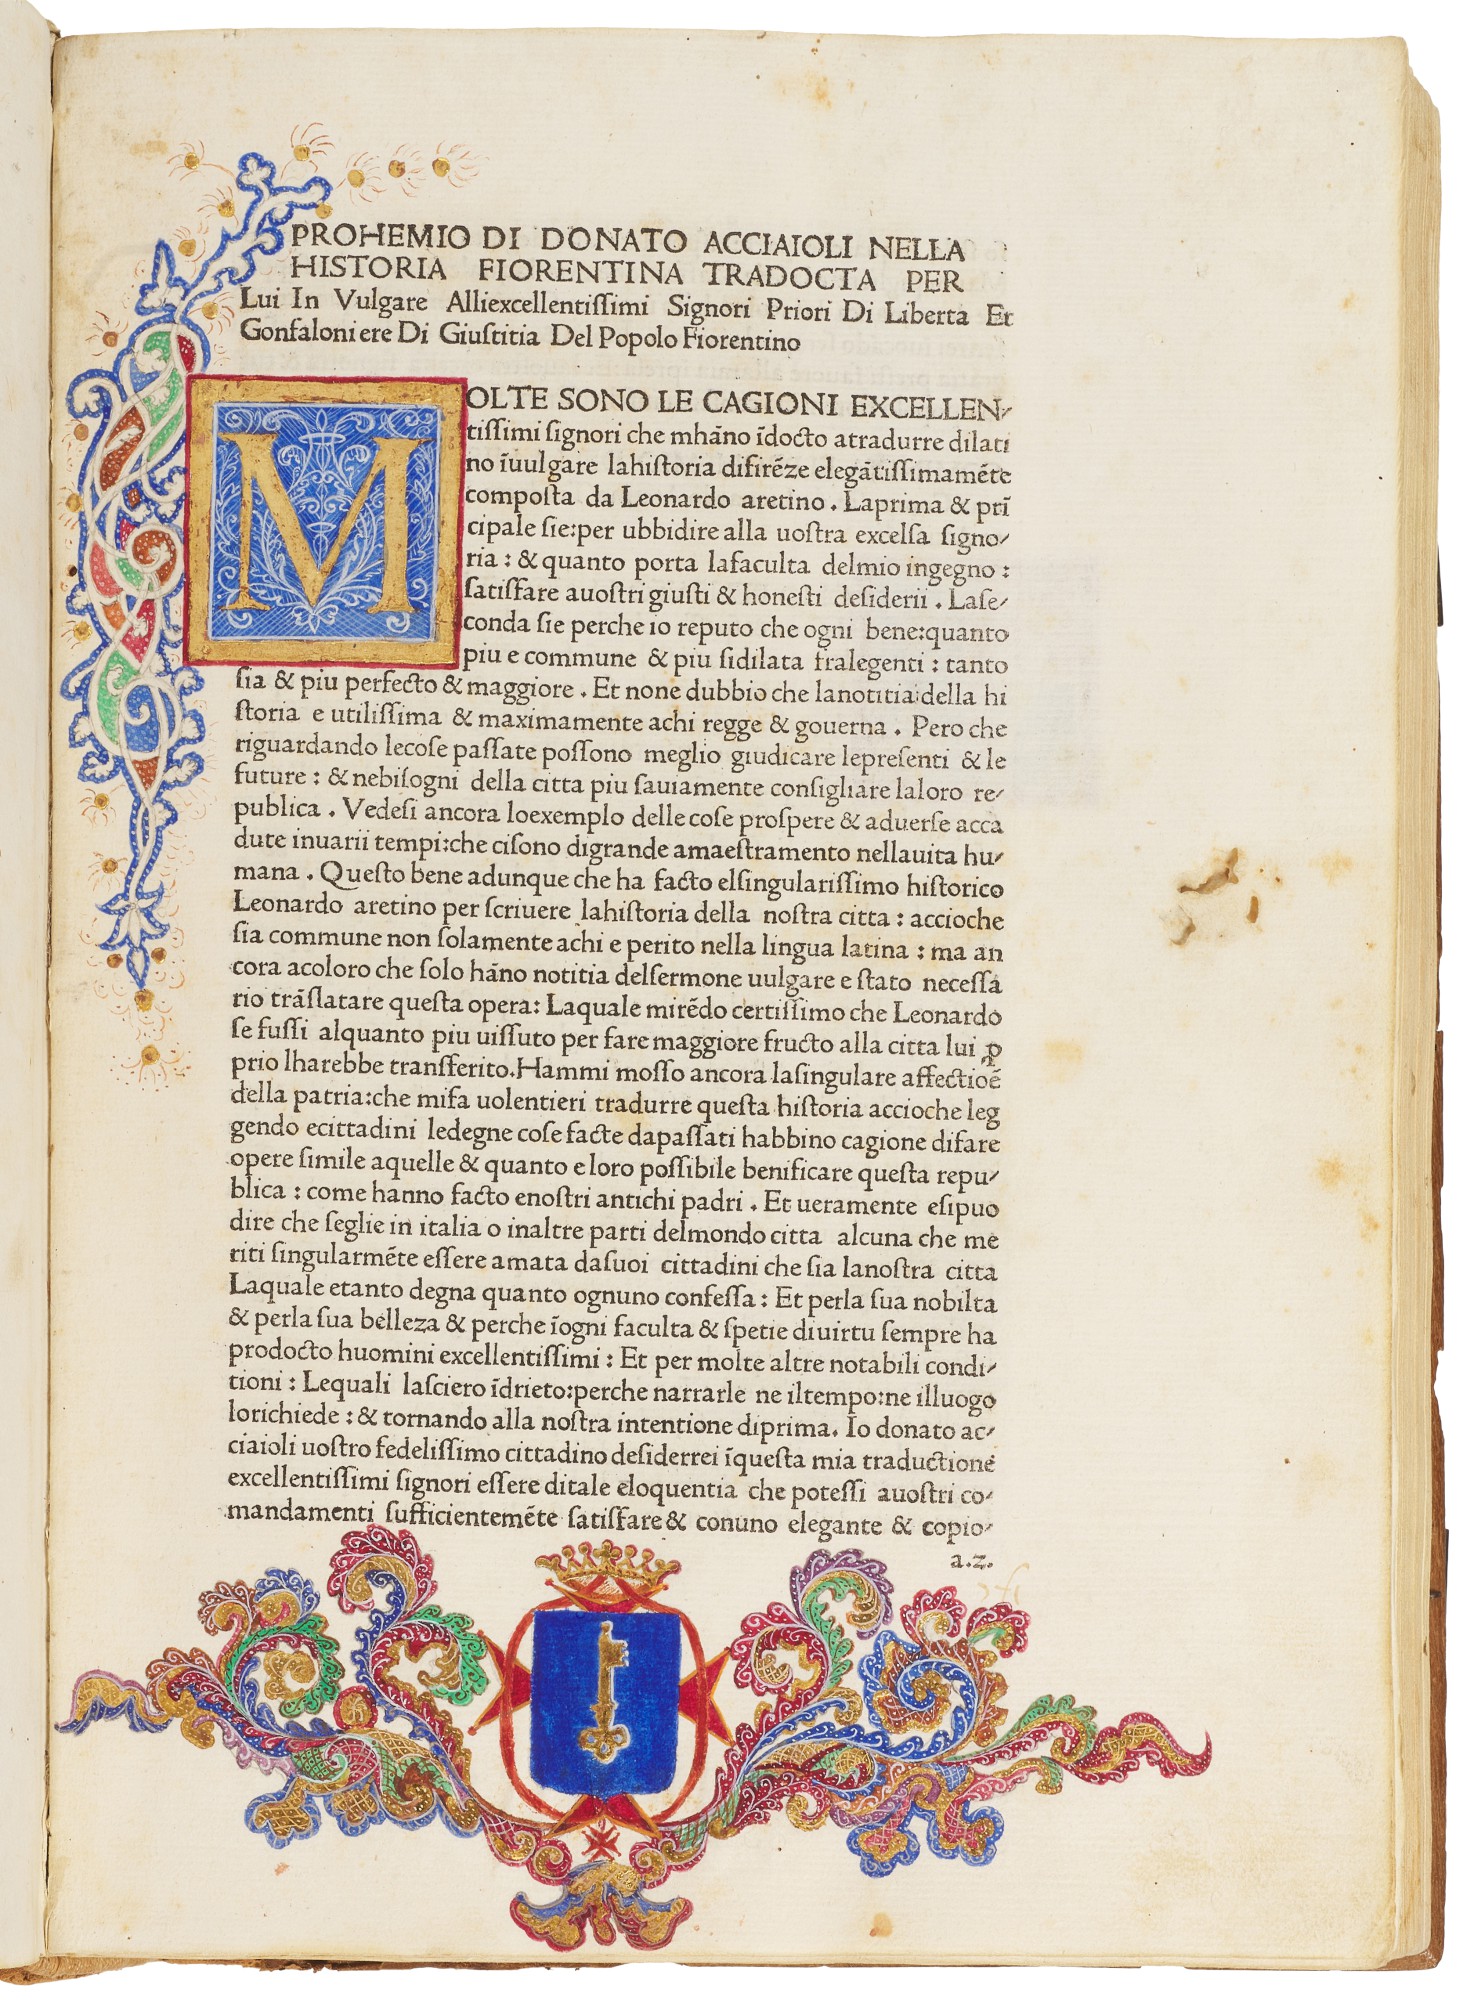 PROHEMIO DI DONATO ACCIAIOLI NELLA
HISTORIA FIORENTINA TRADOCTA PER
Lui In Vulgare Alliexcellentiſſimi Signori Priori Di Liberta Et
Gonfaloniere Di Giuſtitia Del Popolo Fiorentino
MOLTE SONO LE CAGIONI EXCELLEN⸗
tiſſimi ſignori che mhāno īdocto atradurre dilati
no īuulgare lahiſtoria difirēze elegātiſſimamēte
compoſta da Leonardo aretino . Laprima & prī
cipale ſie:per ubbidire alla uoſtra excelſa ſigno⸗
ria : & quanto porta lafaculta delmio ingegno :
ſatiſfare auoſtri giuſti & honeſti deſiderii . Laſe⸗
conda ſie perche io reputo che ogni bene:quanto
piu e commune & piu ſidilata fralegenti : tanto
ſia & piu perfecto & maggiore . Et none dubbio che lanotitia della hi
ſtoria e utiliſſima & maximamente achi regge & gouerna . Pero che
riguardando lecoſe paſſate poſſono meglio giudicare lepreſenti & le
future : & nebiſogni della citta piu ſauiamente conſigliare laloro re⸗
publica . Vedeſi ancora loexemplo delle coſe proſpere & aduerſe acca
dute inuarii tempi:che ciſono digrande amaeſtramento nellauita hu⸗
mana . Queſto bene adunque che ha facto elſingulariſſimo hiſtorico
Leonardo aretino per ſcriuere lahiſtoria della noſtra citta : accioche
ſia commune non ſolamente achi e perito nella lingua latina : ma an
cora acoloro che ſolo hāno notitia delſermone uulgare e ſtato neceſſa
rio trāſlatare queſta opera: Laquale mirēdo certiſſimo che Leonardo
ſe fuſſi alquanto piu uiſſuto per fare maggiore fructo alla citta lui ꝓ
prio lharebbe tranſferito.Hammi moſſo ancora laſingulare affectioē
della patria:che mifa uolentieri tradurre queſta hiſtoria accioche leg
gendo ecittadini ledegne coſe facte dapaſſati habbino cagione difare
opere ſimile aquelle & quanto e loro poſſibile benificare queſta repu⸗
blica : come hanno facto enoſtri antichi padri . Et ueramente eſipuo
dire che ſeglie in italia o inaltre parti delmondo citta alcuna che me
riti ſingularmēte eſſere amata daſuoi cittadini che ſia lanoſtra citta
Laquale etanto degna quanto ognuno confeſſa : Et perla ſua nobilta
& perla ſua belleza & perche īogni faculta & ſpetie diuirtu ſempre ha
prodocto huomini excellentiſſimi : Et per molte altre notabili condi⸗
tioni : Lequali laſciero īdrieto:perche narrarle ne iltempo:ne illuogo
lorichiede : & tornando alla noſtra intentione diprima. Io donato ac⸗
ciaioli uoſtro fedeliſſimo cittadino deſiderrei īqueſta mia traductione
excellentiſſimi ſignori eſſere ditale eloquentia che poteſſi auoſtri co⸗
mandamenti ſufficientemēte ſatiſfare & conuno elegante & copio⸗
a.z.